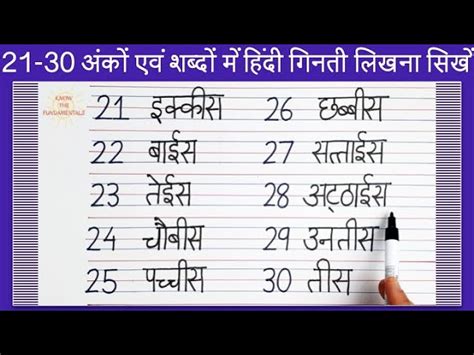 21-30 अंकों एवं शब्दों में हिंदी गिनती लिखना सिखें
KNOW
THE
FUNDAMENTALS
21 इक्कीस
22 बाईस
23 तेईस
24 चौबीस
25 पच्चीस
26 छब्बीस
27 सत्ताईस
28 अट्ठाईस
29 उनतीस
30 तीस